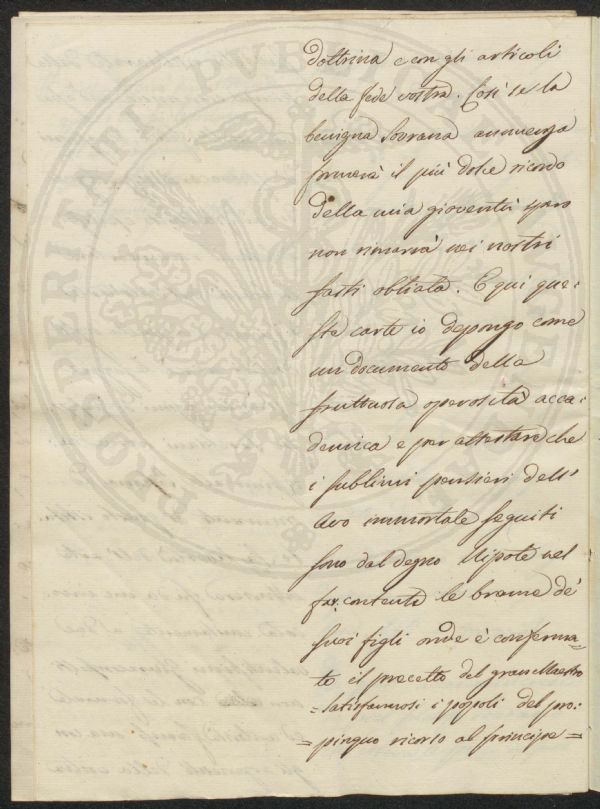 dottrina e con gli articoli
della fede vostra. Così se la
benigna Sovrana annuenza
formerà il più dolce ricordo
della mia gioventù spero
non rimarrà nei nostri
fasti obliata. E qui que=
ste carte io depongo come
un documento della
fruttuosa operosità acca=
demica e per attestare che
i sublimi pensieri dell'
Avo immortale seguiti
sono dal degno Nipote nel
far contente le brame de'
suoi figli onde è conferma=
to il precetto del gran Maestro
=Satisfannosi i popoli del pro=
pinquo ricorso al principe=
PROSPERI AMI PVBLI